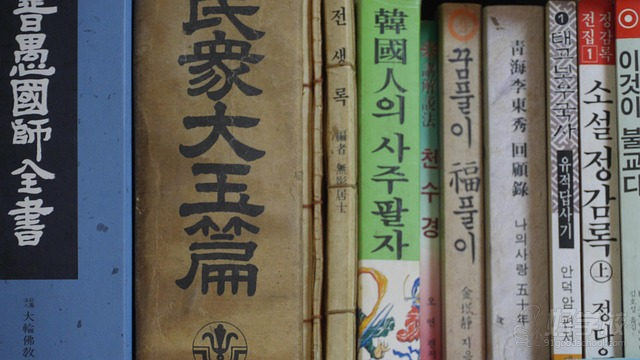 普愚國師全書
大輪佛敎
民衆大玉篇
전생록
編者 無影居士
韓國人의 사주팔자
천수경
꿈풀이 福풀이
지음
靑海李東秀 回顧錄
나의 사랑 五十年
유적답사기
안덕암 편저
정감록
전집 1
소설 정감록 上
이것이 불교다